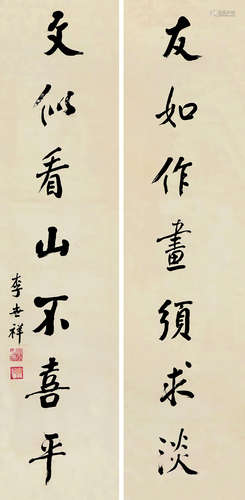 友如作畫須求淡
文似看山不喜平
李世祥